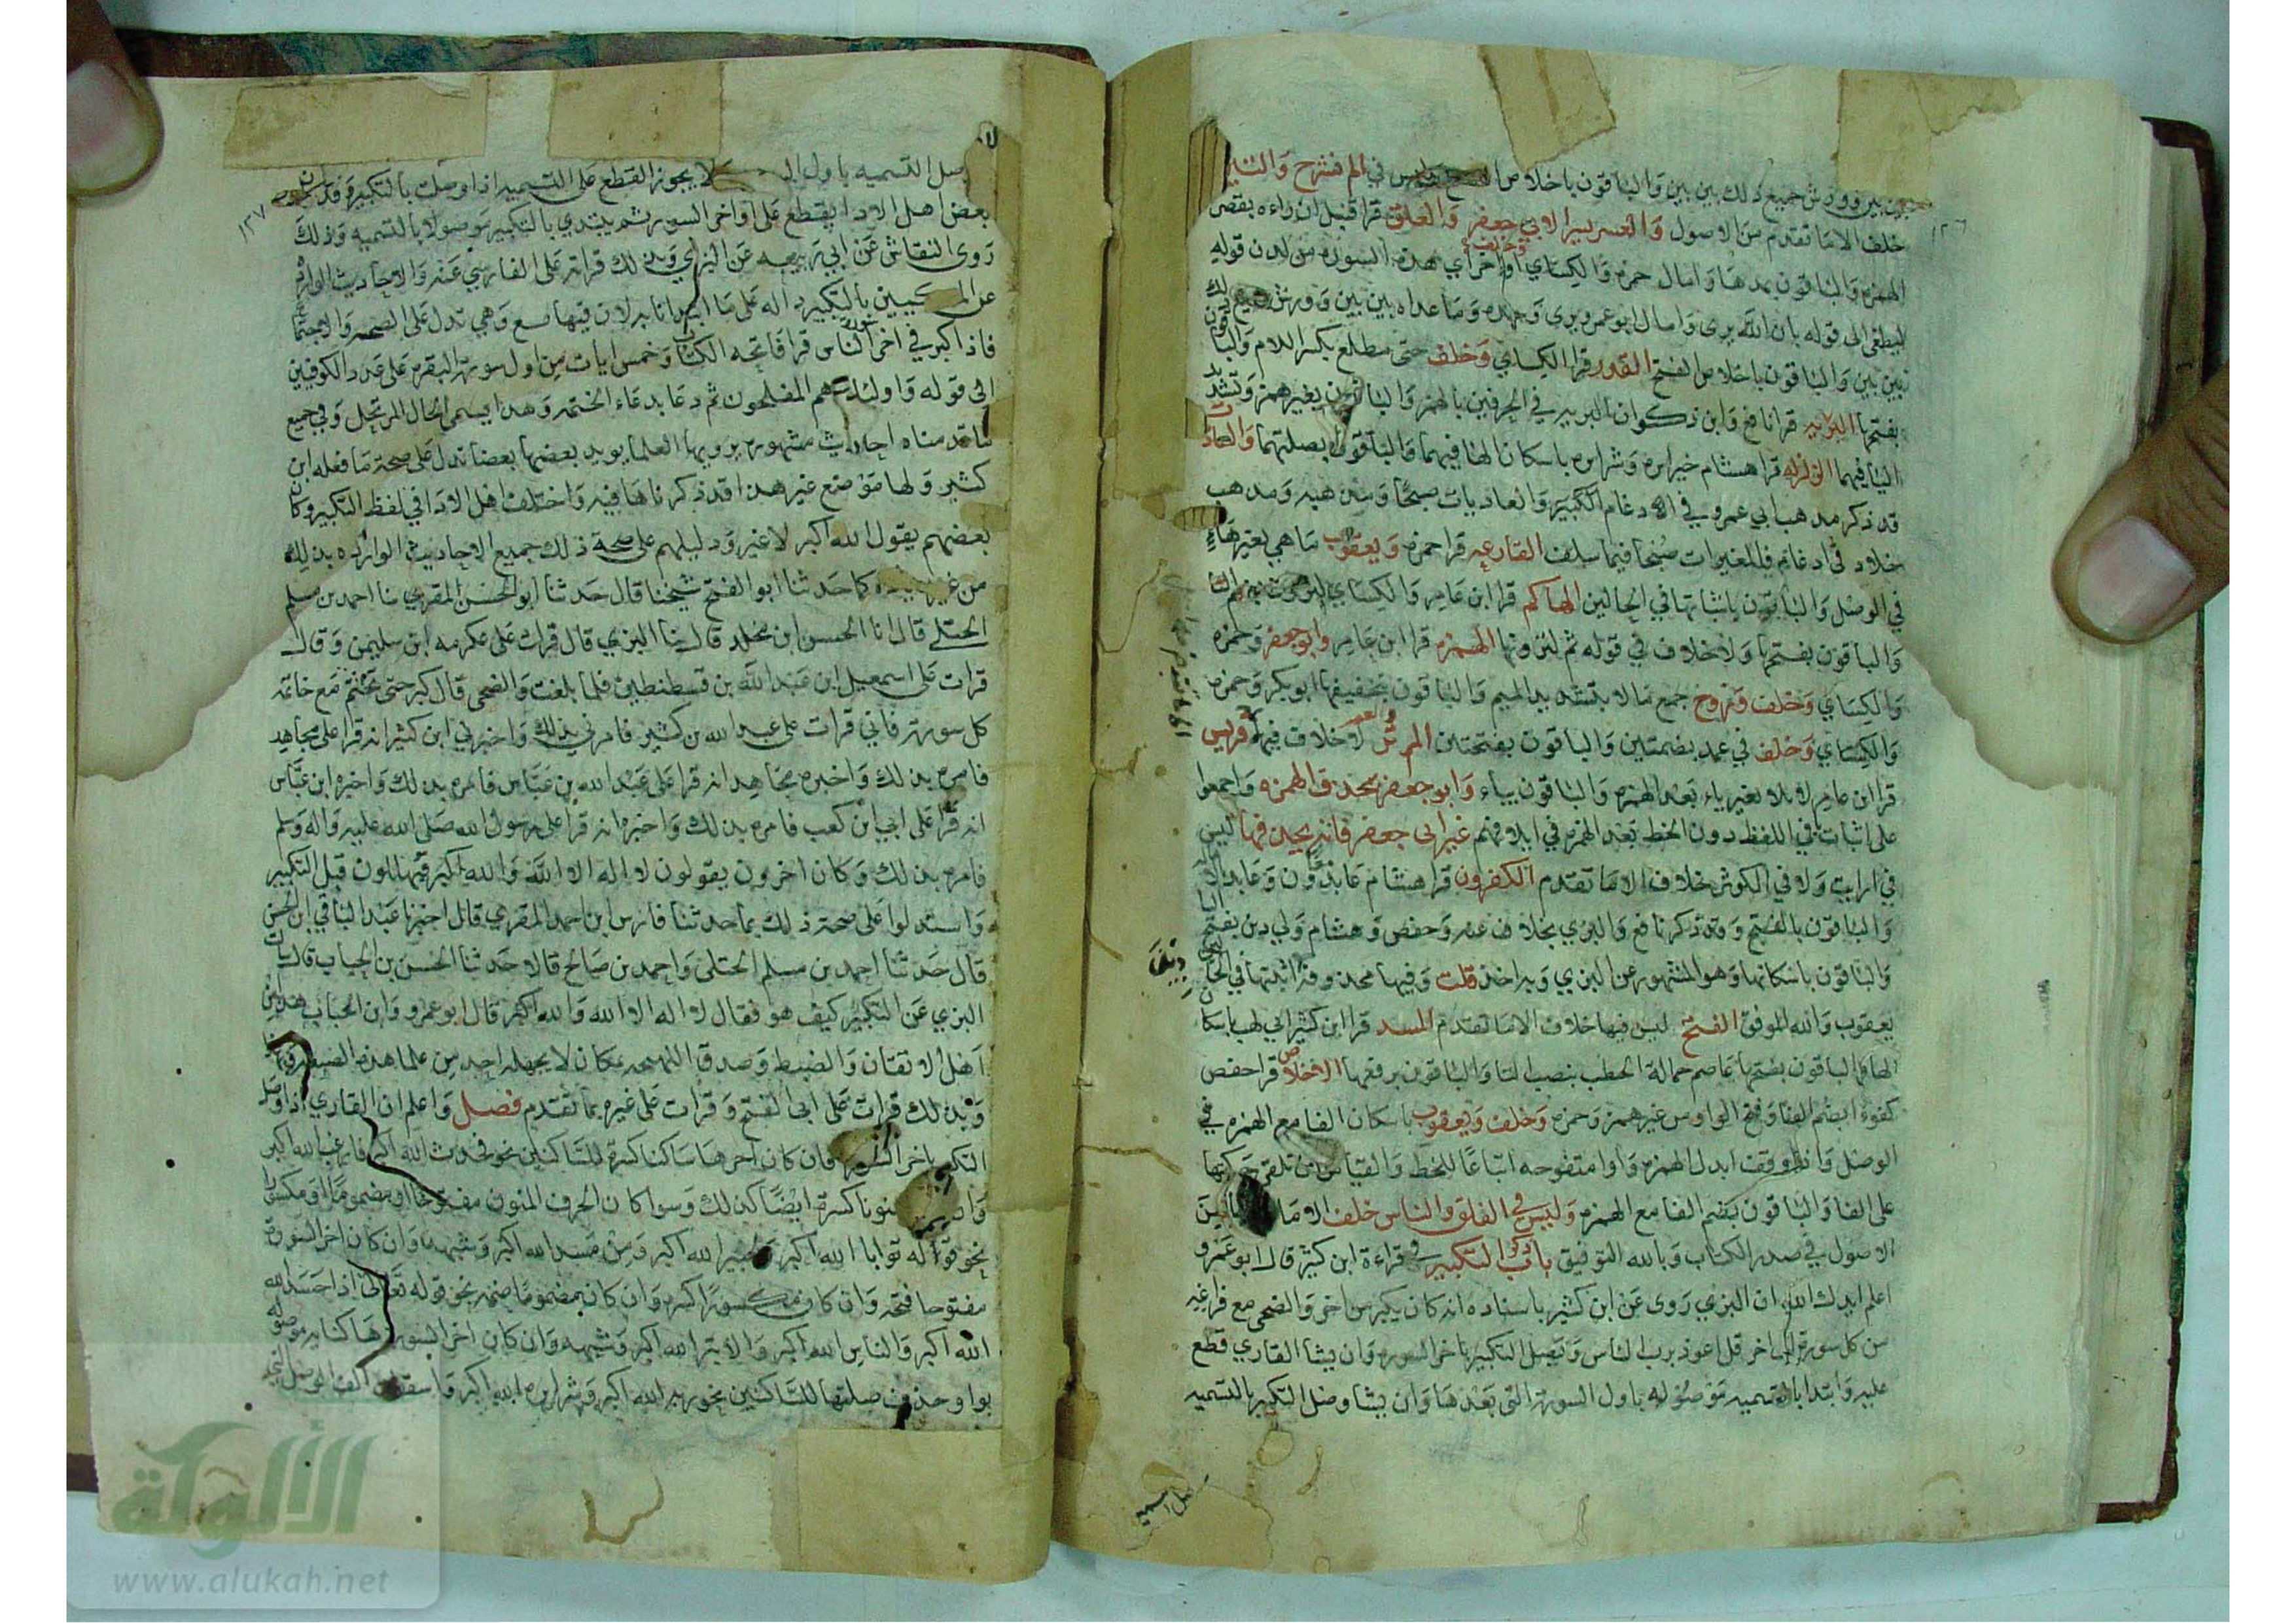 بين بين وورش جميع ذلك بين بين والباقون باخلاص الفتح وليس في الم نشرح والتين
خلف الا ما تقدم من الاصول والعسر يسرا لابي جعفر والعلق قرا قنبل ان راه بقصر
الهمزه والباقون بمدها وامال حمزه والكسائي وخلف اواخر آي هذه السوره من لدن قوله
ليطغى الى قوله بان الله يرى وامال ابو عمرو يرى وحده وما عداه بين بين وورش جميع ذلك
بين بين والباقون باخلاص الفتح القدر قرا الكسائي وخلف حتى مطلع بكسر اللام والباقون
بفتحها البريه قرا نافع وابن ذكوان البريه في الحرفين بالهمز والباقون بغير همز وتشديد
اليا فيهما الزلزله قرا هشام خيرا يره وشرا يره باسكان الها فيهما والباقون بصلتهما والعاديات
قد ذكر مذهب ابي عمرو في الادغام الكبير والعاديات صبحا ومذهبه ومذهب
خلاد في ادغام فالمغيرات صبحا فيما سلف القارعه قرا حمزه ويعقوب ما هي بغير هاء
في الوصل والباقون باثباتها في الحالين الهاكم قرا ابن عامر والكسائي لترون بضم التا
والباقون بفتحها ولا خلاف في قوله ثم لترونها الهمزه قرا ابن عامر وابو جعفر وحمزه
والكسائي وخلف وروح جمع مالا بتشديد الميم والباقون بتخفيفها ابو بكر وحمزه
والكسائي وخلف في عمد بضمتين والباقون بفتحتين الم تر لا خلاف فيها قريش
قرا ابن عامر لالاف بغير ياء بعد الهمزه والباقون بياء وابو جعفر بحذف الهمزه واجمعوا
على اثبات في اللفظ دون الخط بعد الهمز في ايلافهم غير ابي جعفر فانه يحذفها ليس
في ارايت ولا في الكوثر خلاف الا ما تقدم الكفرون قرا هشام عابدون وعابد بالاماله
والباقون بالفتح وقد ذكر نافع والبزي بخلاف عنه وحفص وهشام ولي دين بفتح اليا
والباقون باسكانها وهو المشهور عن البزي وبه اخذ قلت وفيها محذوفه اثبتها في الحالين
يعقوب والله الموفق الفتح ليس فيها خلاف الا ما تقدم المسد قرا ابن كثير ابي لهب باسكان
الها والباقون بفتحها عاصم حمالة الحطب بنصب التا والباقون برفعها الاخلاص قرا حفص
كفوا بضم الفا وفتح الواو من غير همز وحمزه وخلف ويعقوب باسكان الفا مع الهمزه في
الوصل واذا وقف ابدل الهمزه واوا مفتوحه اتباعا للخط والقياس ان تلقى حركتها
على الفا والباقون بضم الفا مع الهمزه وليس في الفلق والناس خلف الا ما
الاصول في صدر الكتاب وبالله التوفيق باب ذكر التكبير في قراءة ابن كثير قال ابو عمرو
اعلم ايدك الله ان البزي روى عن ابن كثير باسناده انه كان يكبر من اخر والضحى مع فراغه
من كل سورة الى اخر قل اعوذ برب الناس ويصل التكبير باخر السوره وان يشا القاري قطع
عليه وابتدا بالتسميه موصوله باول السورة التي بعدها وان يشا وصل التكبير بالتسميه
وصل التسميه باول لا يجوز القطع على التسميه اذا وصلت بالتكبير وقد كان
بعض اهل الادا يقطع على اواخر السور ثم يبتدي بالتكبير موصولا بالتسميه وذلك
روى النقاش عن ابي ربيعه عن البزي وبذلك قرات على الفارسي عنه والاحاديث الوارده
عن المكيين بالتكبير داله على ما ابتدانا به لان فيها مع وهي تدل على الصحبه والاجتماع
فاذا كبر في اخر سورة الناس قرا فاتحة الكتاب وخمس ايات من اول سورة البقره على عدد الكوفيين
الى قوله واولئك هم المفلحون ثم دعا بدعاء الختمه وهذا يسمى الحال المرتحل وفي جميع
ما قدمناه احاديث مشهوره يرويها العلما يويد بعضها بعضا تدل على صحة ما فعله ابن
كثير ولها موضع غير هذا قد ذكرناها فيه واختلف اهل الادا في لفظ التكبير وكان
بعضهم يقول الله اكبر لا غير ودليلهم على صحة ذلك جميع الاحاديث الوارده بذلك
من غير زياده كما حدثنا ابو الفتح شيخنا قال حدثنا ابو الحسن المقري نا احمد بن سلم
الختلي قال انا الحسن ابن مخلد قال نا البزي قال قرات على عكرمه ابن سليمن وقال
قرات على اسمعيل ابن عبد الله بن قسطنطين فلما بلغت والضحى قال كبر حتى تختم مع خاتمة
كل سورة فاني قرات على عبد الله بن كثير فامرني بذلك واخبرني ابن كثير انه قرا على مجاهد
فامره بذلك واخبره مجاهد انه قرا على عبد الله بن عباس فامره بذلك واخبره ابن عباس
انه قرا على ابي ابن كعب فامره بذلك واخبره انه قرا على رسول الله صلى الله عليه واله وسلم
فامره بذلك وكان اخرون يقولون لا اله الا الله والله اكبر فيهللون قبل التكبير
واستدلوا على صحة ذلك بما حدثنا فارس ابن احمد المقري قال اخبرنا عبد الباقي ابن الحسن
قال حدثنا احمد بن سلم الختلي واحمد بن صالح قالا حدثنا الحسن بن الحباب قال سالت
البزي عن التكبير كيف هو فقال لا اله الا الله والله اكبر قال ابو عمرو وابن الحباب هذا من
اهل الاتقان والضبط وصدق اللهجه بمكان لا يجهله احد من علما هذه الصنعه
وبذلك قرات على ابي الفتح وقرات على غيره بما تقدم فصل واعلم ان القاري اذا وصل
التكبير باخر السوره فان كان اخرها ساكنا كسره للساكنين نحو فحدث الله اكبر فارغب الله اكبر
وان منونا كسره ايضا كذلك وسوا كان الحرف المنون مفتوحا او مضموما او مكسورا
نحو قوله توابا الله اكبر ولخبير الله اكبر ومن مسد الله اكبر وشبهه وان كان اخر السورة
مفتوحا فتحه وان كان مكسورا كسره وان كان مضموما ضمه نحو قوله تعالى اذا حسد الله
الله اكبر والناس الله اكبر والابتر الله اكبر وشبهه وان كان اخر السوره هاء كنايه موصوله
بواو حذف صلتها للساكنين نحو ربه الله اكبر وشرا يره الله اكبر واسقط الف الوصل
الألوكة
www.alukah.net